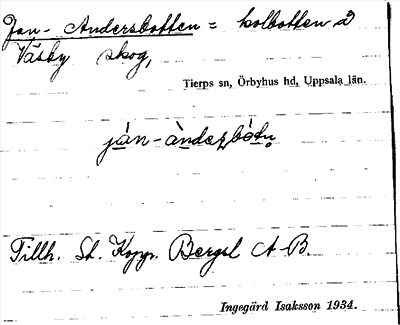 Jan-Andersbotten = kolbotten å
Väsby skog,
Tierps sn, Örbyhus hd, Uppsala län.
ján-àndeṣbòtn̥
Tillh. St. Kopp. Bergsl A-B.
Ingegärd Isaksson 1934.